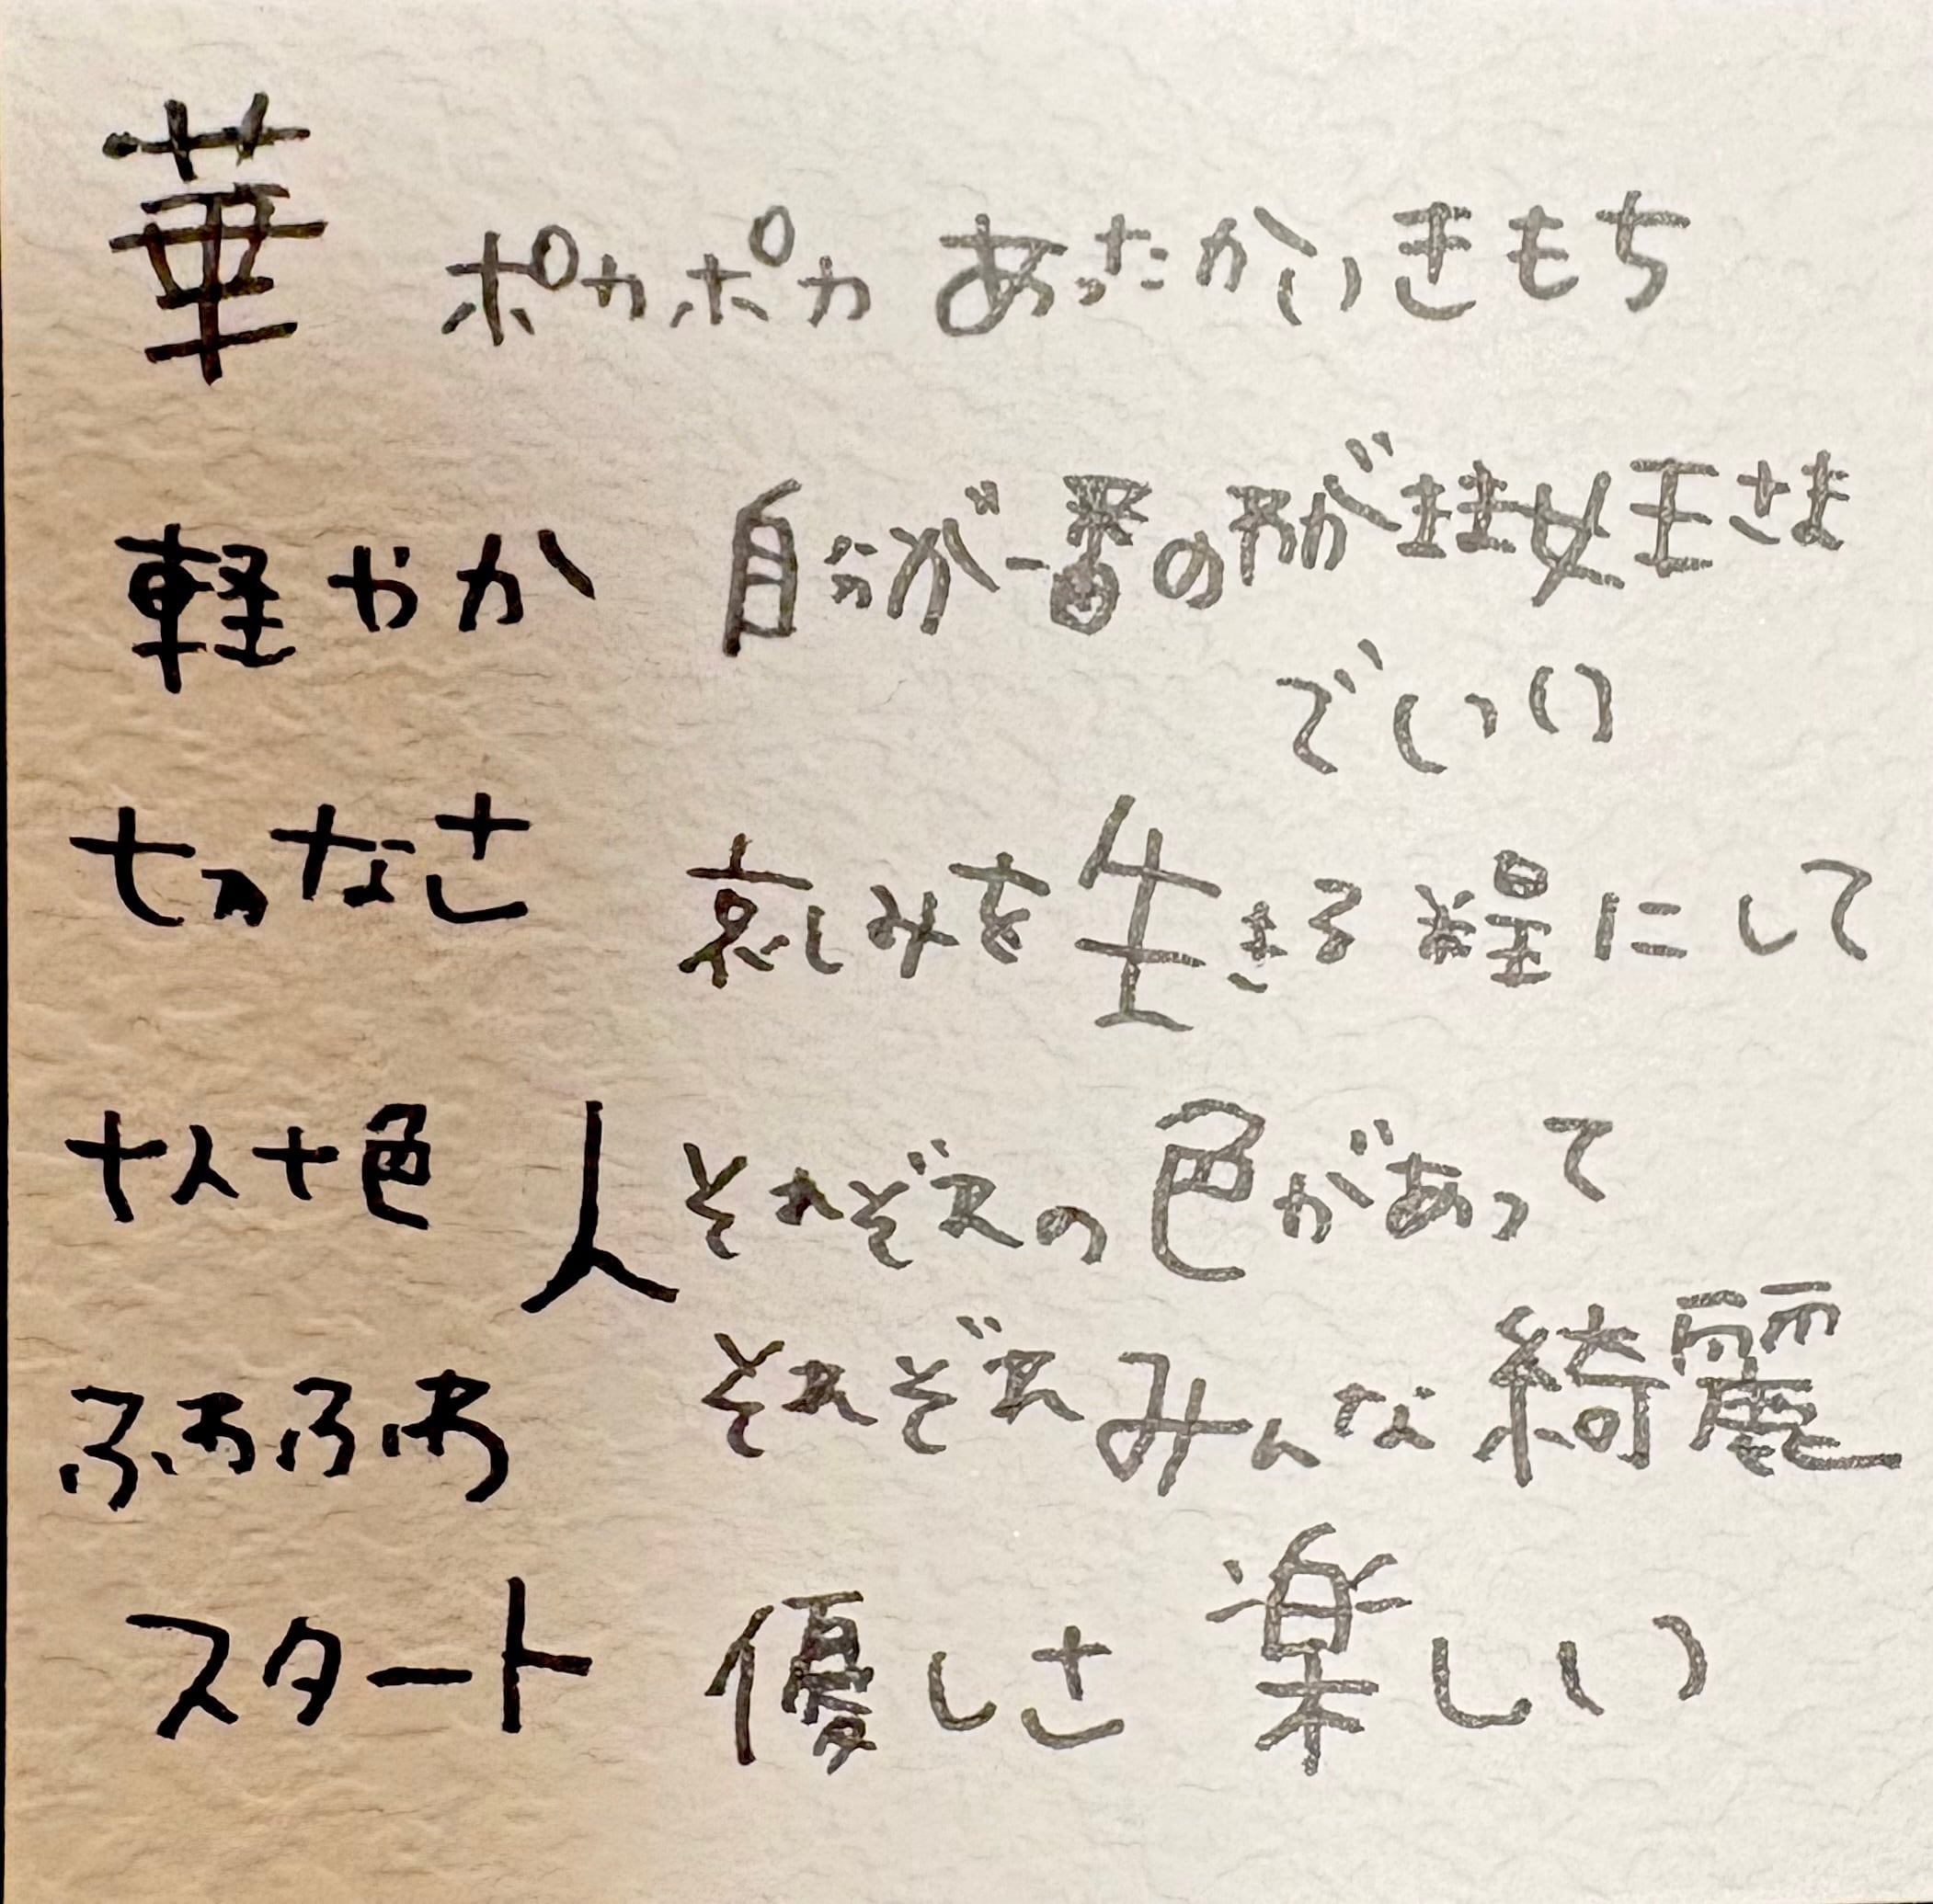 華 ポカポカ あったかいきもち
軽やか 自分が一番のわがまま女王さま
でいい
切なさ 哀しみを生きる糧にして
十人十色 人それぞれの色があって
ふわふわ それぞれみんな綺麗
スタート 優しさ 楽しい